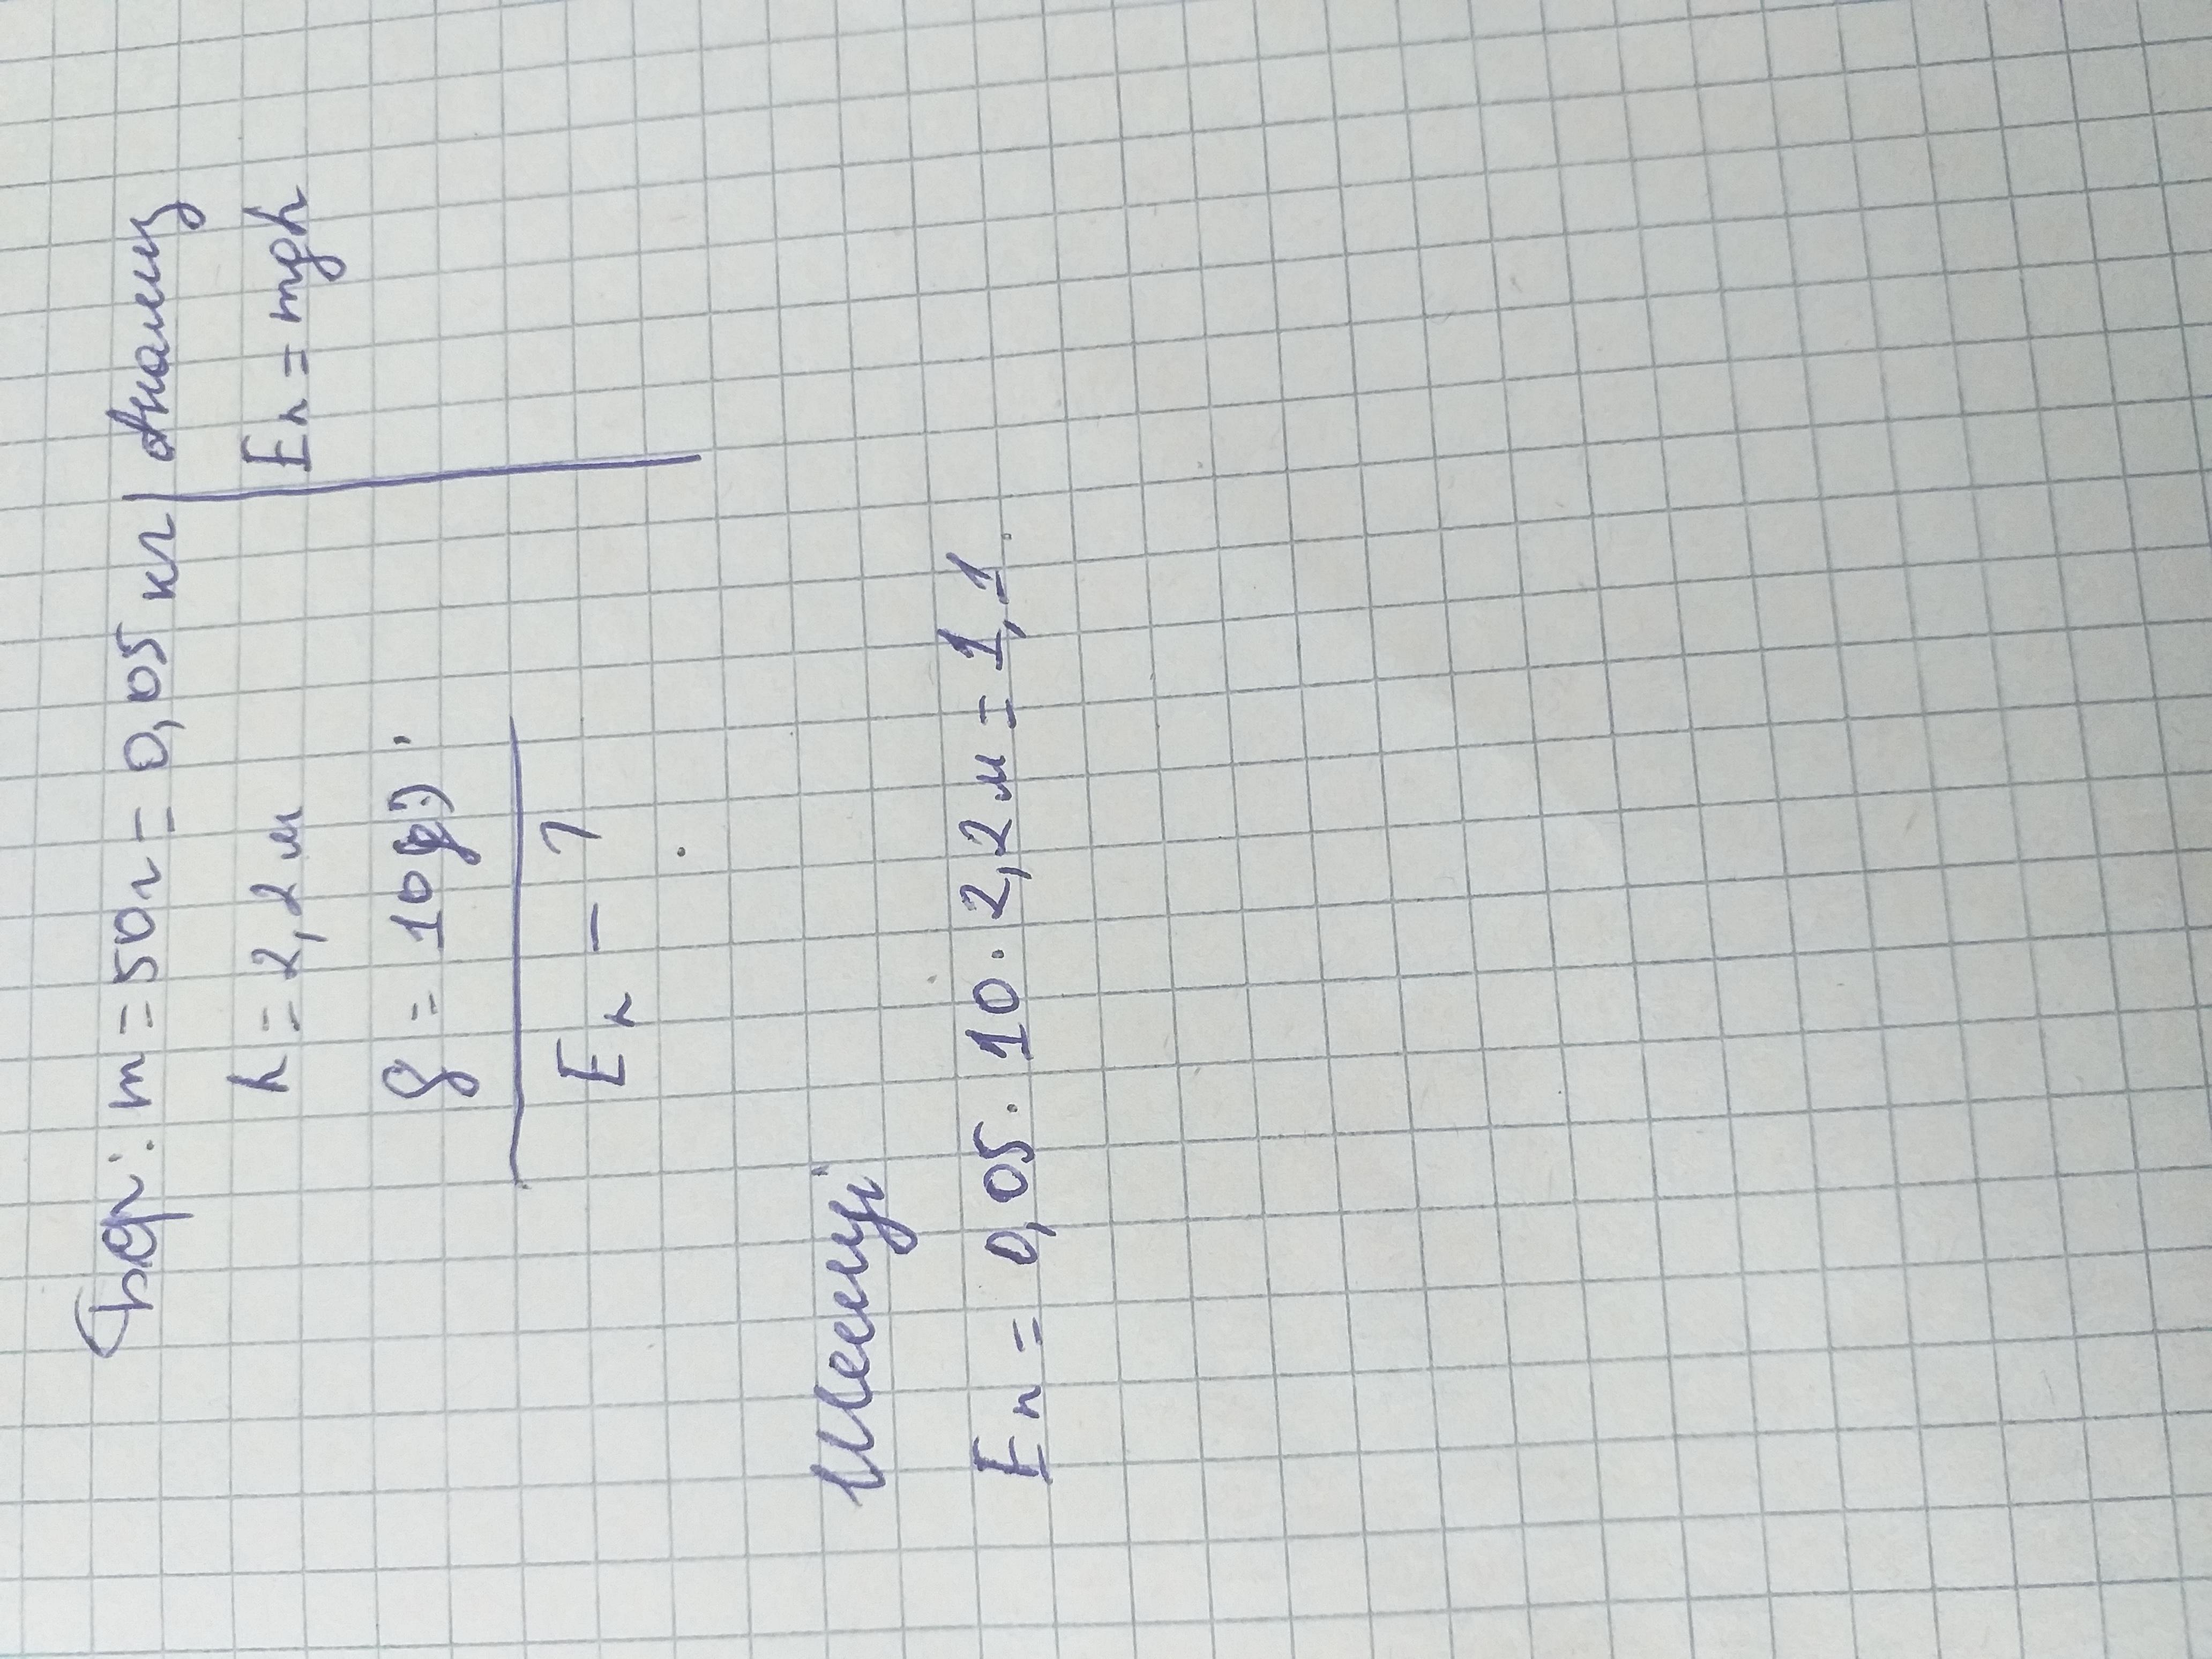 Бер: m = 50г = 0,05 кг | Анализ
h = 2,2 м
Eп = mgh
g = 10
Eп - ?
Шешуі
Eп = 0,05 · 10 · 2,2 м = 1,1